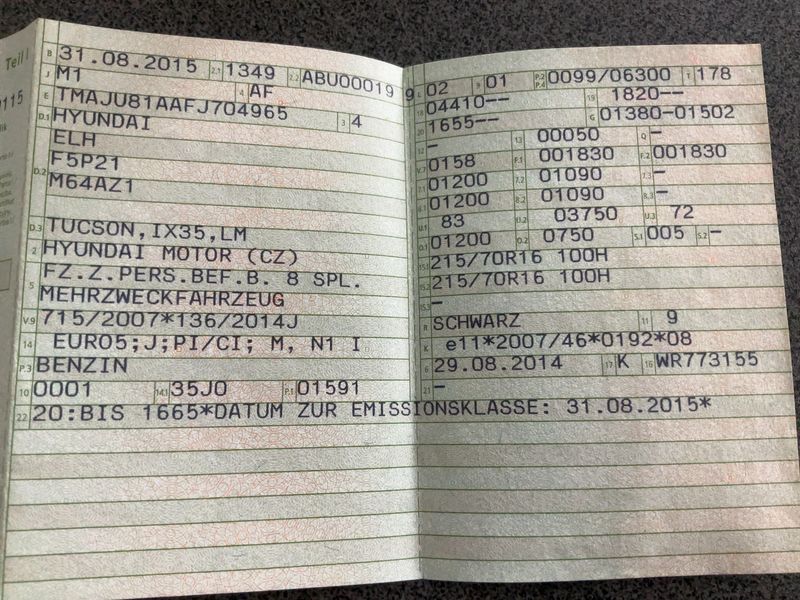 Teil I
B 31.08.2015 2.1 1349 2.2 ABU00019 9
J M1 4 AF
E TMAJU81AAFJ704965 3 4
D.1 HYUNDAI
ELH
D.2 F5P21
M64AZ1
D.3 TUCSON,IX35,LM
2 HYUNDAI MOTOR (CZ)
5 FZ.Z.PERS.BEF.B. 8 SPL.
MEHRZWECKFAHRZEUG
V.9 715/2007*136/2014J
14 EURO5;J;PI/CI; M, N1 I
P.3 BENZIN
10 0001 14.1 35J0 P.1 01591
22 20:BIS 1665*DATUM ZUR EMISSIONSKLASSE: 31.08.2015*
02 9 01 P.2 P.4 0099/06300 T 178
18 04410-- 19 1820--
20 1655-- G 01380-01502
12 - 13 00050 Q -
V.7 0158 F.1 001830 F.2 001830
7.1 01200 7.2 01090 7.3 -
8.1 01200 8.2 01090 8.3 -
U.1 83 U.2 03750 U.3 72
O.1 01200 O.2 0750 S.1 005 S.2 -
15.1 215/70R16 100H
15.2 215/70R16 100H
15.3 -
R SCHWARZ 11 9
K e11*2007/46*0192*08
6 29.08.2014 17 K 16 WR773155
21 -